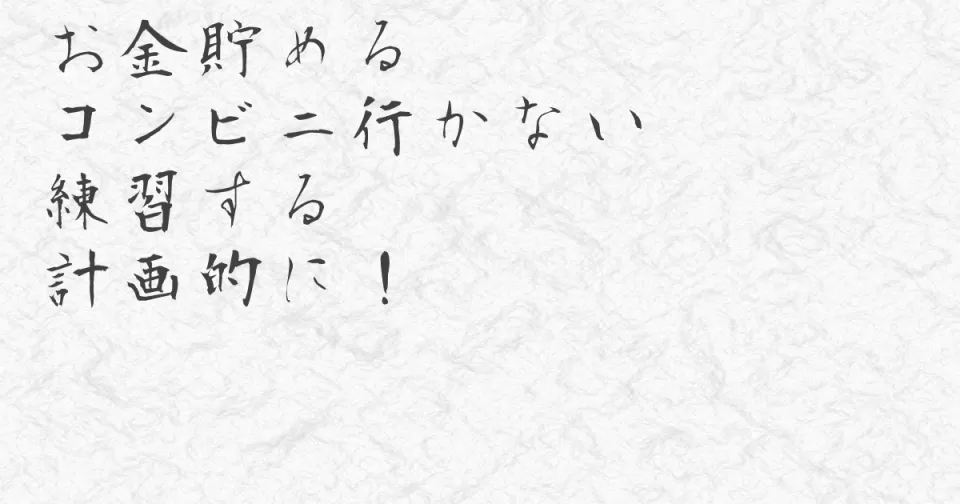 お金貯める
コンビニ行かない
練習する
計画的に！